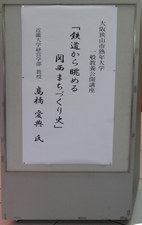 大阪狭山市熟年大学
一般教養公開講座
「鉄道から眺める
関西まちづくり史」
近畿大学経営学部 教授
高橋 愛典 氏